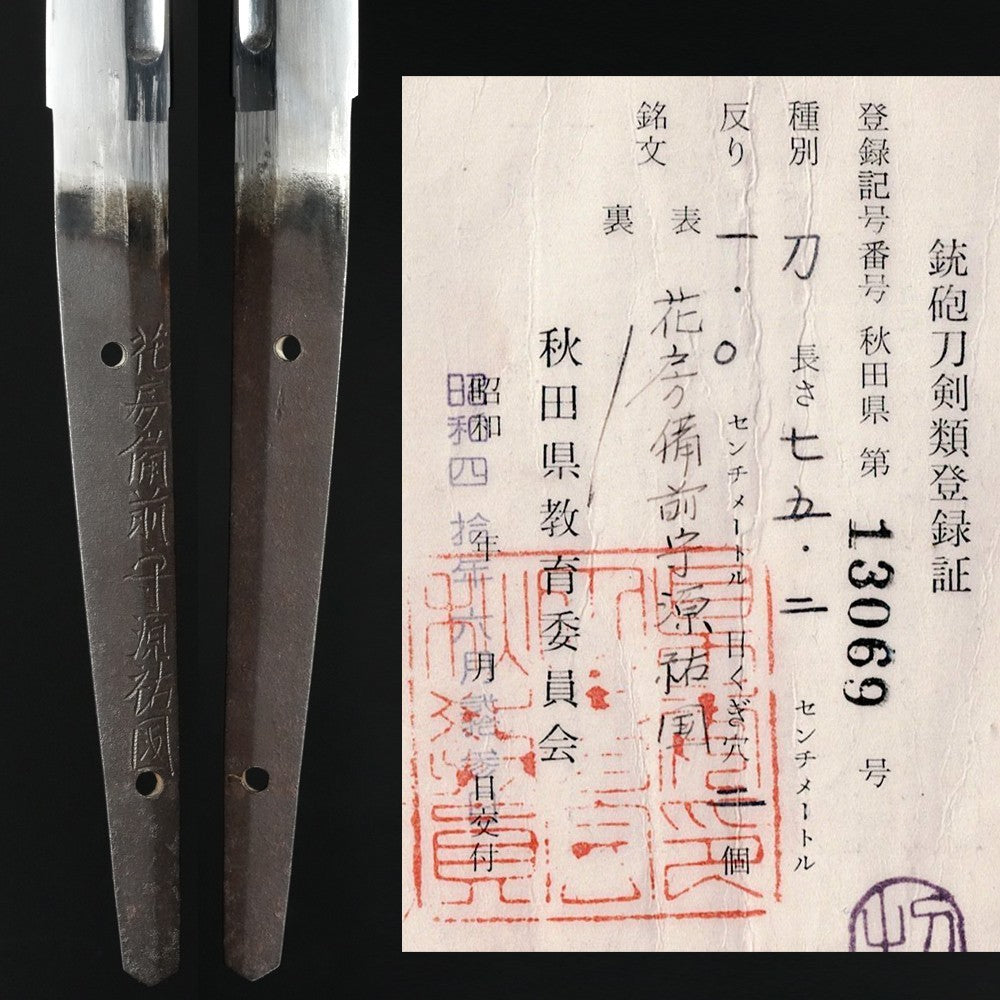 花房備前守源祐国
銃砲刀剣類登録証
登録記号番号 秋田県 第 13069 号
種別 刀 長さ 七五.二 センチメートル
反り 一.〇 センチメートル 目くぎ穴 二 個
銘文
表 花房備前守源祐国
裏
秋田県教育委員会
昭和 年 月 日交付
昭和四拾年六月貳拾参日